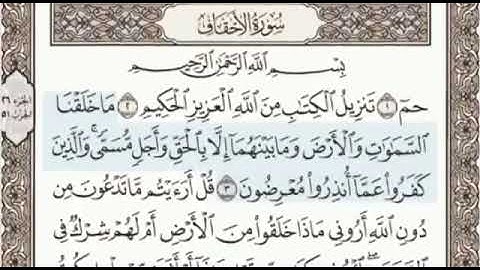 سُورَةُ الْأَحْقَافِ
بِسْمِ اللَّهِ الرَّحْمَٰنِ الرَّحِيمِ
حمٓ ١ تَنزِيلُ الْكِتَٰبِ مِنَ اللَّهِ الْعَزِيزِ الْحَكِيمِ ٢ مَا خَلَقْنَا
السَّمَٰوَٰتِ وَالْأَرْضَ وَمَا بَيْنَهُمَآ إِلَّا بِالْحَقِّ وَأَجَلٍ مُّسَمًّى ۚ وَالَّذِينَ
كَفَرُوا۟ عَمَّآ أُنذِرُوا۟ مُعْرِضُونَ ٣ قُلْ أَرَءَيْتُم مَّا تَدْعُونَ مِن
دُونِ اللَّهِ أَرُونِى مَاذَا خَلَقُوا۟ مِنَ الْأَرْضِ أَمْ لَهُمْ شِرْكٌ فِى